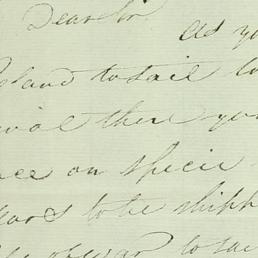 Dear Sir
As yo
land to sail to
ival there you
ce on specie
ears to be shipp
of war to sai